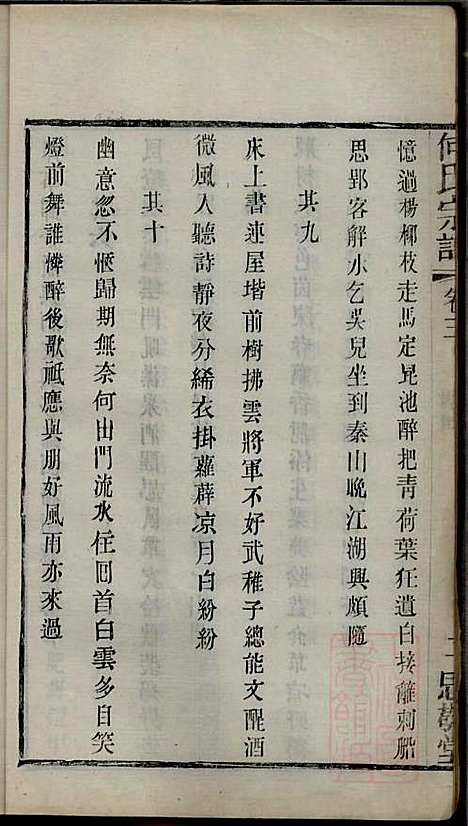 何氏宗譜
卷三
思敬堂
憶過楊柳枝走馬定昆池醉把青荷葉狂遺白接離刺船
思郢客解水乞吳兒坐到秦山晚江湖興頗隨
其九
床上書連屋堦前樹拂雲將軍不好武稚子總能文醒酒
微風入聽詩靜夜分絺衣掛蘿薜凉月白紛紛
其十
幽意忽不愜歸期無奈何出門流水住囘首白雲多自笑
燈前舞誰憐醉後歌祗應與朋好風雨亦來過